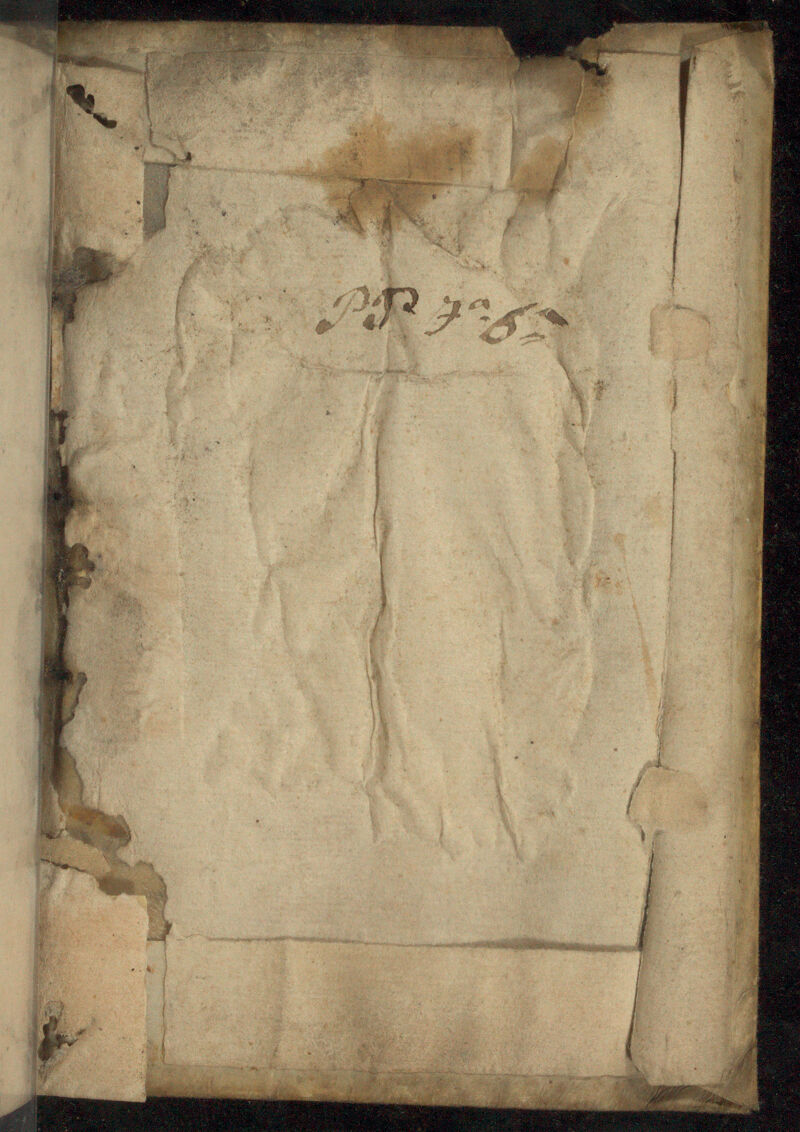 PP. 7ª. 6ª